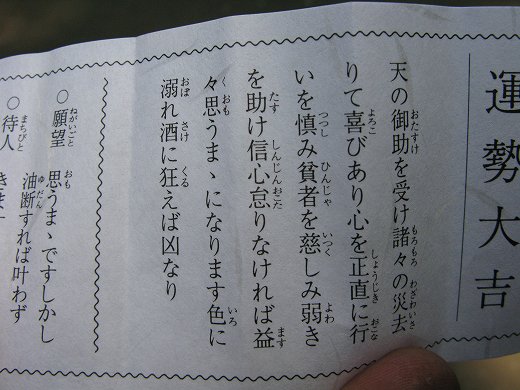 運勢大吉
天の御助を受け諸々の災去
りて喜びあり心を正直に行
いを慎み貧者を慈しみ弱き
を助け信心怠りなければ益
々思うまゝになります色に
溺れ酒に狂えば凶なり
○願望 思うまゝですしかし
油断すれば叶わず
○待人 きま